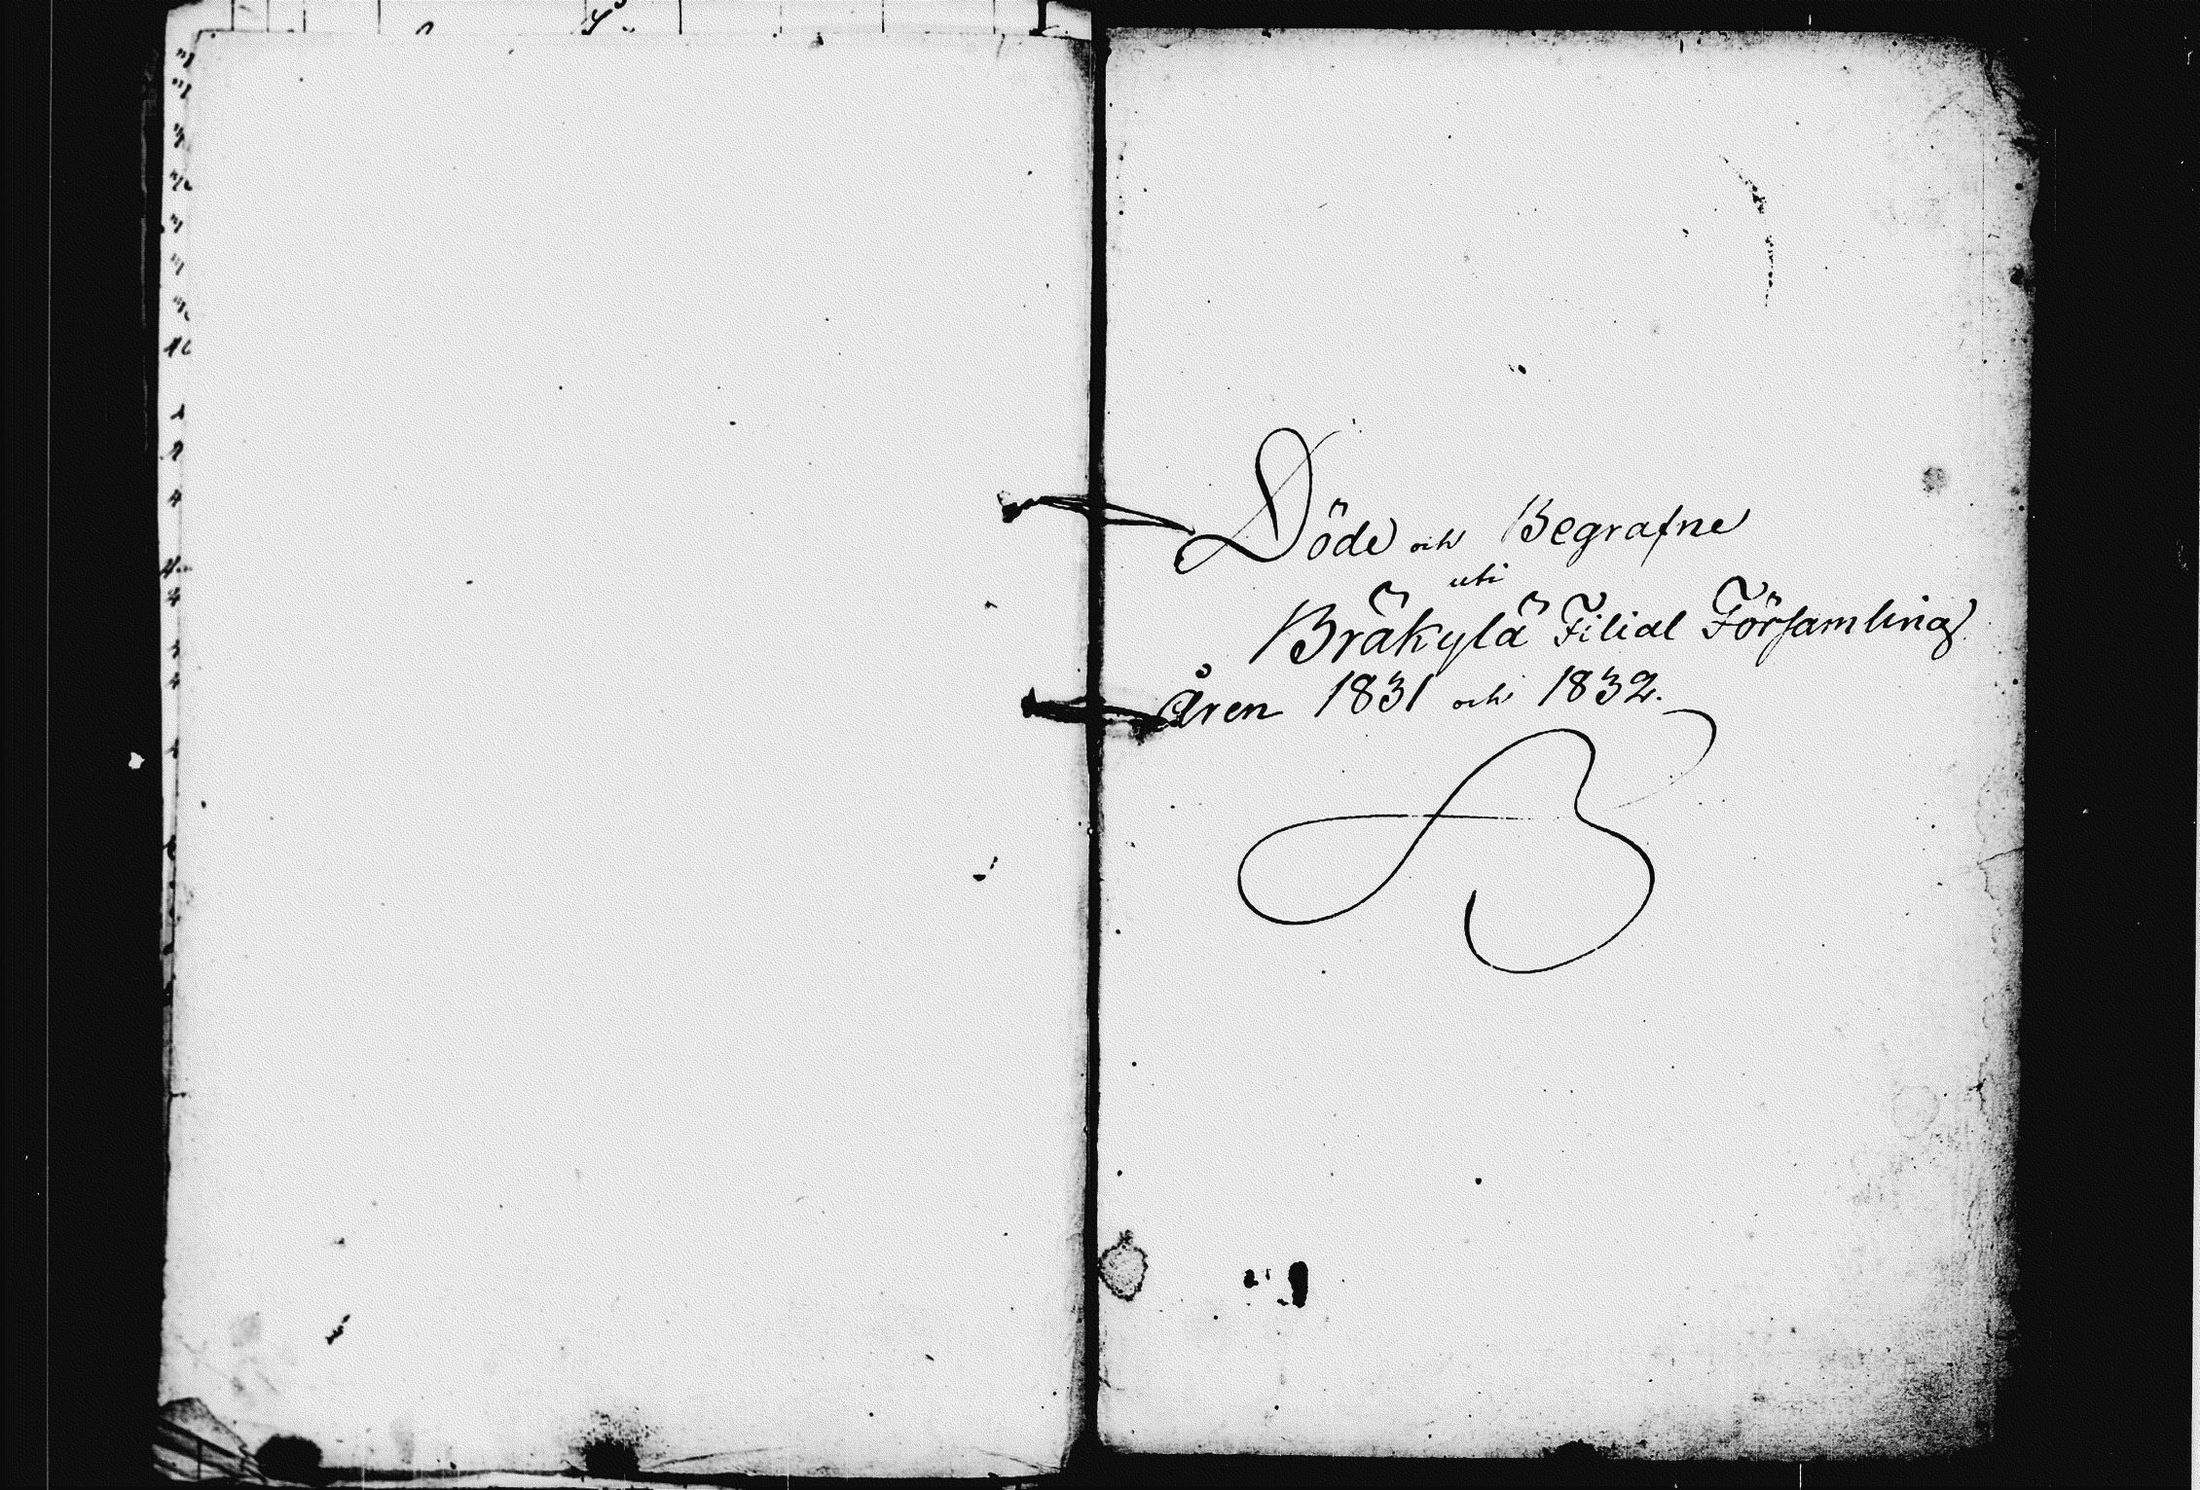 Döde och Begrafne
uti
Bräkylä Filial Församling
Åren 1831 och 1832.